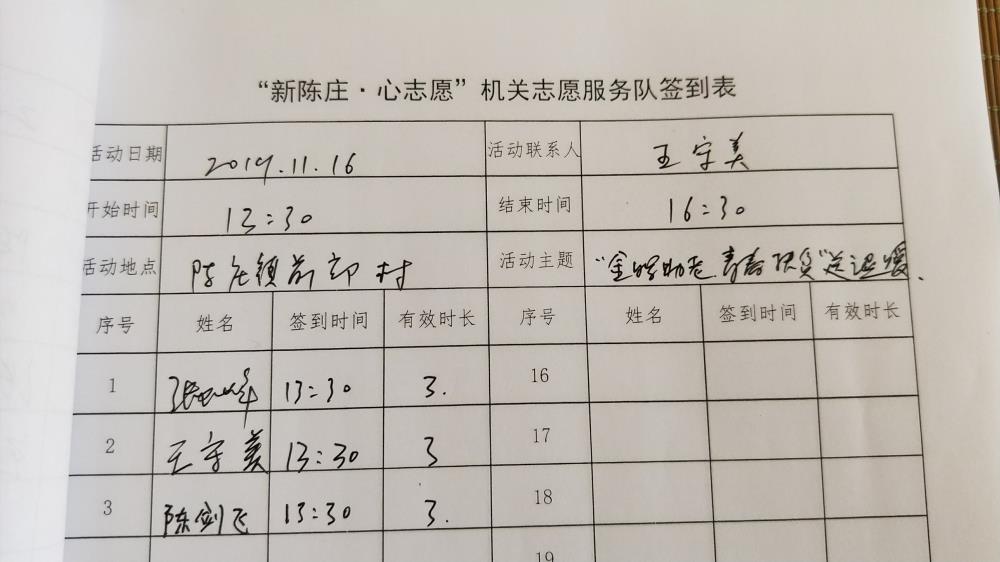 “新陈庄·心志愿”机关志愿服务队签到表
活动日期 2019.11.16 活动联系人 王守美
开始时间 13:30 结束时间 16:30
活动地点 陈庄镇前郭村 活动主题 “金晖助老青春扶贫”送温暖.
序号 姓名 签到时间 有效时长 序号 姓名 签到时间 有效时长
1 13:30 3. 16
2 王守美 13:30 3 17
3 陈剑飞 13:30 3. 18
19